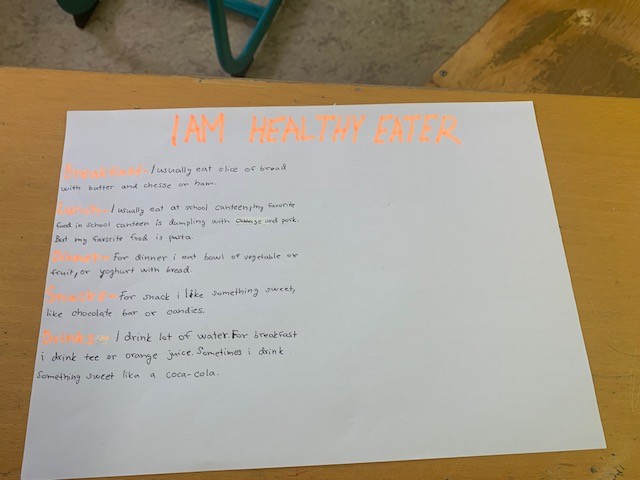 I AM HEALTHY EATER
Breakfast- I usually eat slice of bread
with butter and chesse or ham.
Lunch- I usually eat at school canteen, my favorite
food in school canteen is dumpling with cabbage and pork.
But my favorite food is pasta.
Dinner- For dinner i eat bowl of vegetable or
fruit, or yoghurt with bread.
Snacks- For snack i like something sweet,
like chocolate bar or candies.
Drinks- I drink lot of water. For breakfast
i drink tee or orange juice. Sometimes i drink
something sweet lika a coca-cola.